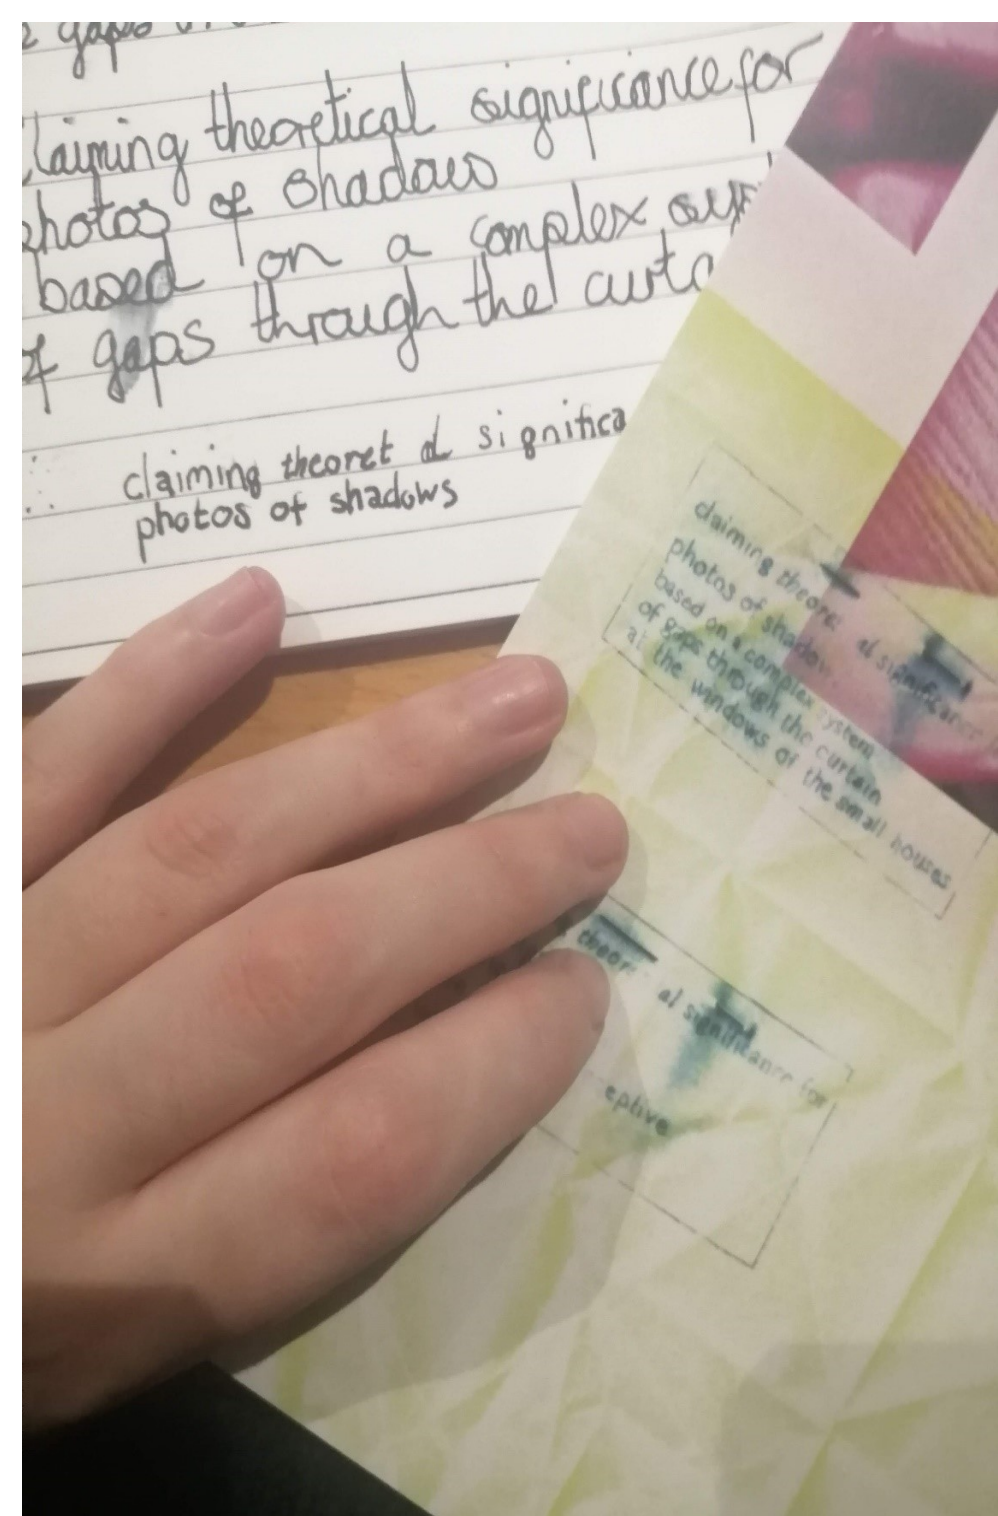 gaps
claiming theoretical significance for
photos of shadows
based on a complex
of gaps through the
claiming theoret al
photos of shadows
claiming theoret al significance
photos of shadow
based on a complex system
of gaps through the curtain
at the windows of the small houses
theoret al significance for
eptive